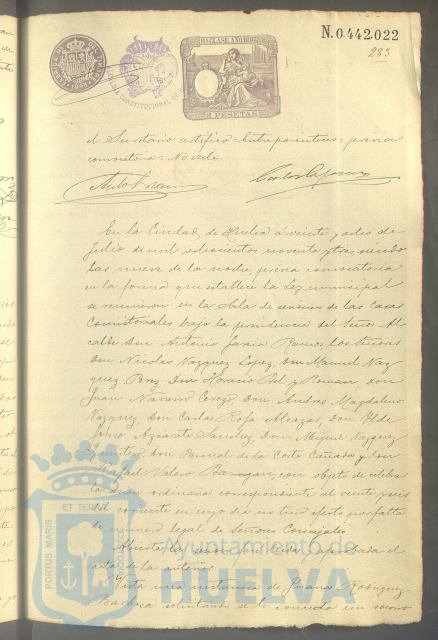 N. 0.442.022
283
11ª CLASE AÑO 1893
2 PESETAS
el Secretario certifico = Entre paréntesis = previa
convocatoria = No vale.
En la Ciudad de Huelva á veinte y ocho de
Julio de mil ochocientos noventa y tres, siendo
las nueve de la noche, previa convocatoria
en la forma que establece la Ley municipal
se reunieron en la Sala de sesiones de las Casas
Consistoriales bajo la presidencia del Señor Al
calde Don Antonio García Ramos, los Señores
Don Nicolas Vazquez Lopez, Don Manuel Vaz
quez Don Horacio Bel y Roman, don
Juan Navarro Don Andres Magdaleno
Vazquez Don Carlos Rofa Alcazar, Don Ilde
fonso Sanchez, Don Miguel Vazquez
Don Pascual de la Corte Cañada y don
Rafael Valero Barragan, con objeto de celebrar
la sesion ordinaria correspondiente al veinte y seis
del corriente en cuyo dia no tuvo efecto por falta
de número legal de Señores Concejales.
Abierta la sesion fue leida y aprobada el
acta de la anterior.
Vista una instancia de Juana Rodriguez
solicitando se le conceda un socorro
PORTUS MARIS ET TERRAE CUSTODIA
Ayuntamiento de
HUELVA